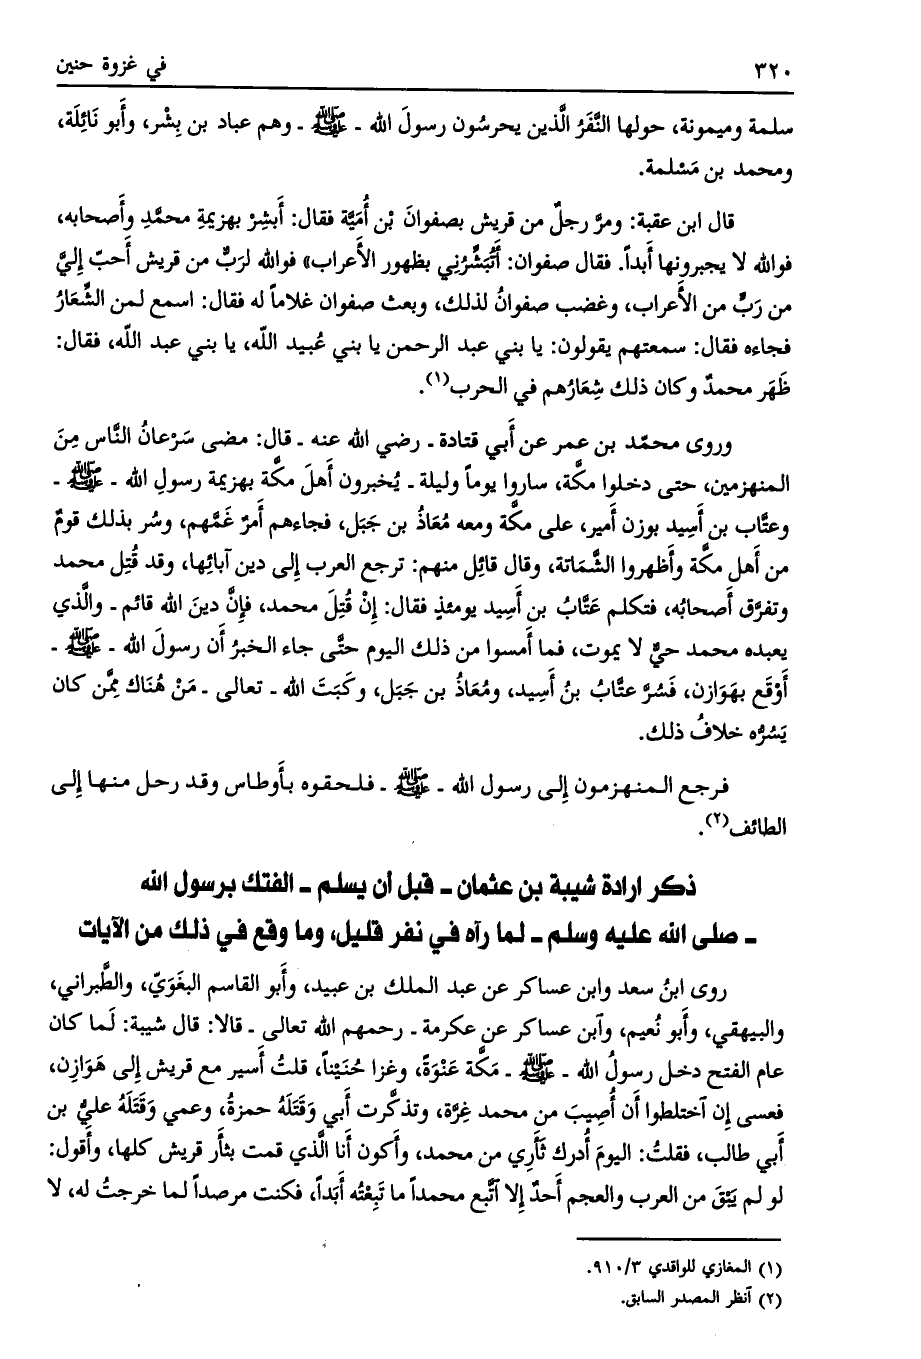 ٣٢٠ في غزوة حنين
سلمة وميمونة، حولها النَّفَرُ الَّذين يحرسُون رسولَ الله ـ ﷺ ـ وهم عباد بن بِشْر، وأَبو نَائِلَة،
ومحمد بن مَسْلمة.
قال ابن عقبة: ومرَّ رجلٌ من قريش بصفوانَ بْن أُمَيَّة فقال: أَبشِرْ بهزيمةِ محمَّدٍ وأَصحابه،
فوالله لا يجبرونها أَبداً. فقال صفوان: أَتُبَشِّرُنِي بظهور الأَعراب» فوالله لرَبٌّ من قريش أَحبّ إِليَّ
من رَبٍّ من الأَعراب، وغضب صفوانُ لذلك، وبعث صفوان غلاماً له فقال: اسمع لمن الشِّعَارُ
فجاءه فقال: سمعتهم يقولون: يا بني عبد الرحمن يا بني عُبيد اللَّه، يا بني عبد اللَّه، فقال:
ظَهَر محمدٌ وكان ذلك شِعَارُهم في الحرب(١).
وروى محمّد بن عمر عن أَبي قتادة ـ رضي الله عنه ـ قال: مضى سَرْعانُ النَّاس مِنَ
المنهزمين، حتى دخلوا مكَّة، ساروا يوماً وليلة ـ يُخبرون أَهلَ مكَّة بهزيمة رسولِ الله ـ ﷺ ـ
وعتَّاب بن أَسِيد بوزن أَمير، على مكَّة ومعه مُعَاذُ بن جَبَل، فجاءهم أَمرٌ غَمَّهم، وسُر بذلك قومٌ
من أَهل مكَّة وأَظهروا الشَّمَاتة، وقال قائِل منهم: ترجع العرب إِلى دين آبائِها، وقد قُتِل محمد
وتفرَّق أَصحابُه، فتكلم عَتَّابُ بن أَسِيد يومئذٍ فقال: إِنْ قُتِلَ محمد، فإِنَّ دينَ الله قائم ـ والَّذي
يعبده محمد حيٌّ لا يموت، فما أَمسوا من ذلك اليوم حتَّى جاء الخبرُ أَن رسولَ الله ـ ﷺ ـ
أَوْقَع بهَوَازن، فَسُرَّ عتَّابُ بنُ أَسِيد، ومُعَاذُ بن جَبَل، وكَبَتَ الله ـ تعالى ـ مَنْ هُنَاك مِمَّن كان
يَسُرُّه خلافُ ذلك.
فرجع المنهزمون إِلى رسول الله ـ ﷺ ـ فلحقوه بأَوطاس وقد رحل منها إِلى
الطائف(٢).
ذكر ارادة شيبة بن عثمان ـ قبل أن يسلم ـ الفتك برسول الله
ـ صلى الله عليه وسلم ـ لما رآه في نفر قليل، وما وقع في ذلك من الآيات
روى ابنُ سعد وابن عساكر عن عبد الملك بن عبيد، وأَبو القاسم البغَوَيّ، والطَّبراني،
والبيهقي، وأَبو نُعيم، وآبن عساكر عن عكرمة ـ رحمهم الله تعالى ـ قالا: قال شيبة: لَما كان
عام الفتح دخل رسولُ الله ـ ﷺ ـ مَكَّة عَنْوَةً، وغزا حُنَيْناً، قلتُ أَسير مع قريش إِلى هَوَازِن،
فعسى إِن آختلطوا أَن أُصِيبَ من محمد غِرَّة، وتذكَّرت أَبي وَقَتَلَهُ حمزةُ، وعمي وَقَتَلَهُ عليُّ بن
أَبي طالب، فقلتُ: اليومَ أُدرك ثَأَرِي من محمد، وأَكون أَنا الَّذي قمت بثأر قريش كلها، وأَقول:
لو لم يَبْقَ من العرب والعجم أَحدٌ إِلا آتَّبع محمداً ما تَبِعْتُه أَبَداً، فكنت مرصداً لما خرجتُ له، لا
(١) المغازي للواقدي ٩١٠/٣.
(٢) آنظر المصدر السابق.